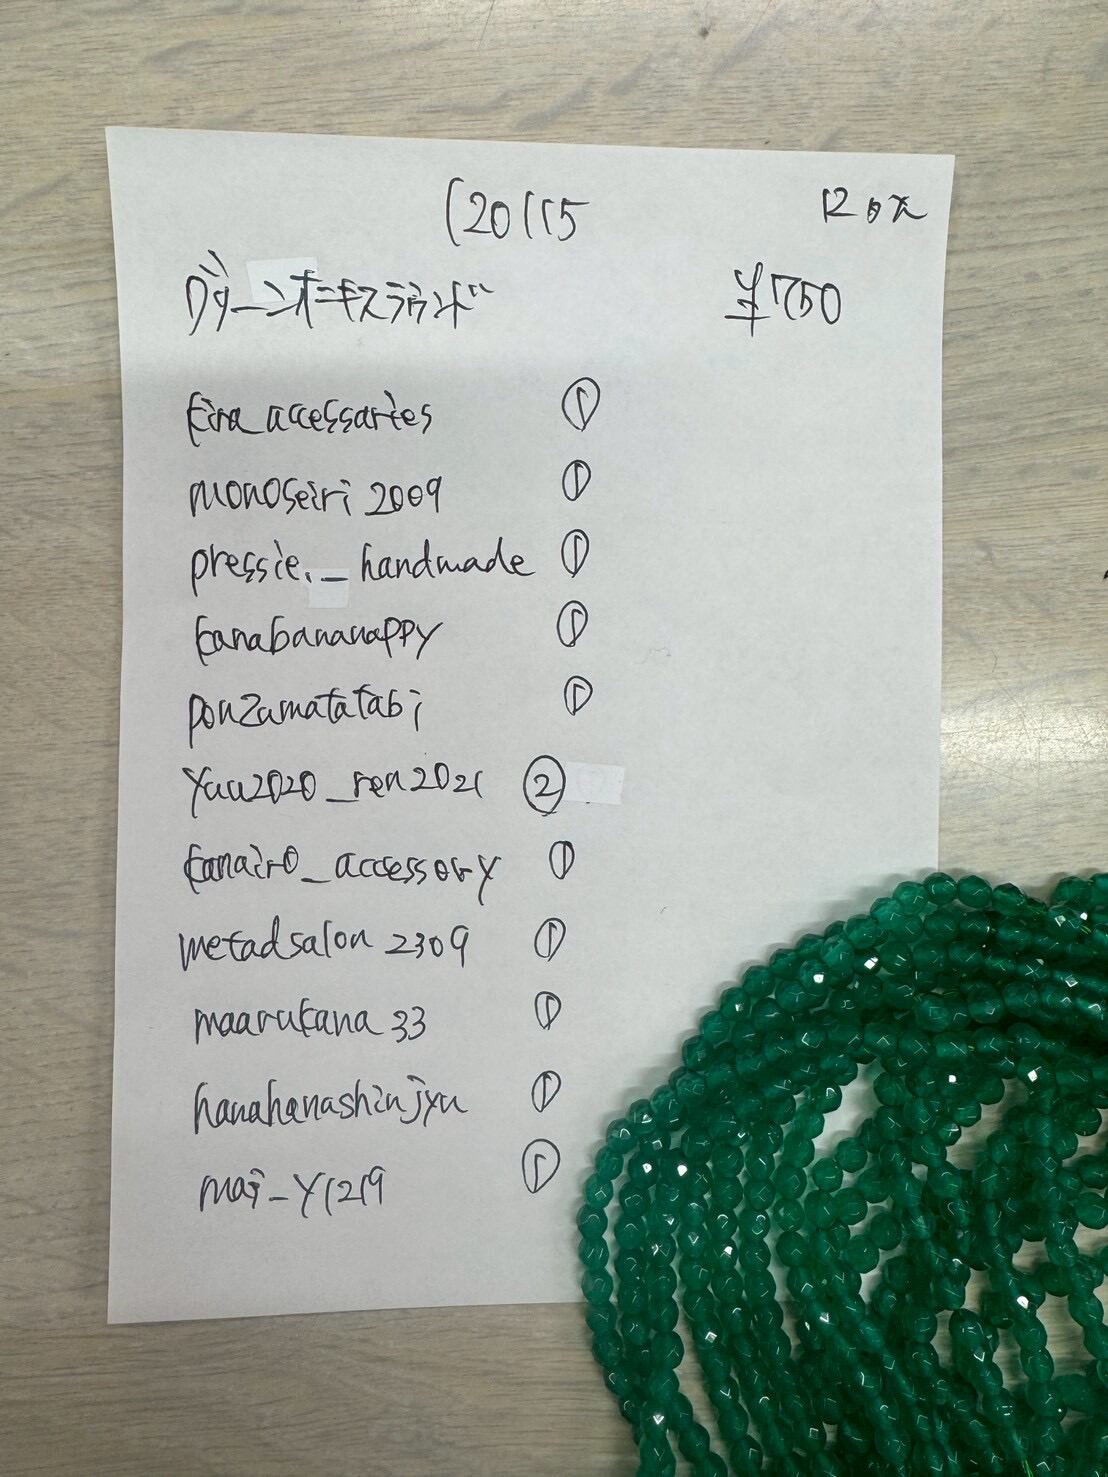 120115
12点
グリーンオニキスラウンド ¥750
kira_accessaries ①
monoseiri2009 ①
pressie._handmade ①
kanabananappy ①
ponzumatatabi ①
yuu2020_ren2021 ②
kanairo_accessory ①
metadsalon2309 ①
maarukana33 ①
hanahanashinjyu ①
mai_y1219 ①